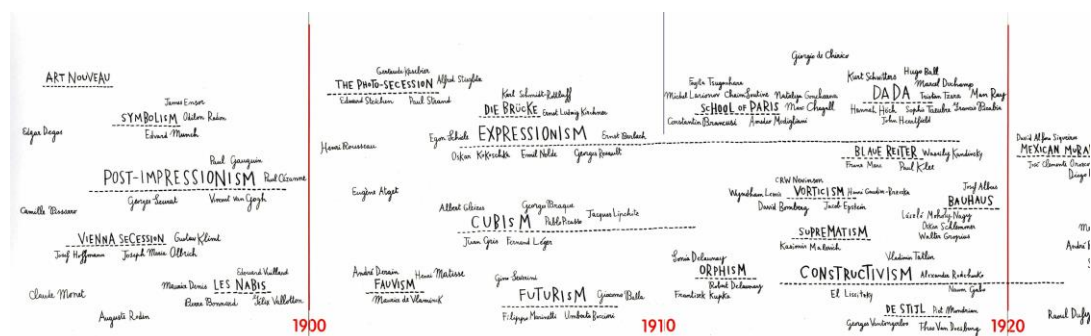 ART NOUVEAU
James Ensor
SYMBOLISM Odilon Redon
Edvard Munch
Edgar Degas
Paul Gauguin
POST-IMPRESSIONISM Paul Cézanne
Georges Seurat Vincent van Gogh
Camille Pissarro
VIENNA SECESSION Gustav Klimt
Josef Hoffmann Joseph Maria Olbrich
Edouard Vuillard
Maurice Denis LES NABIS
Pierre Bonnard Félix Vallotton
Claude Monet
Auguste Rodin
1900
Gertrude Käsebier
THE PHOTO-SECESSION Alfred Stieglitz
Edward Steichen Paul Strand
Karl Schmidt-Rottluff
DIE BRÜCKE Ernst Ludwig Kirchner
Egon Schiele EXPRESSIONISM Ernst Barlach
Henri Rousseau
Oskar Kokoschka Emil Nolde Georges Rouault
Eugène Atget
Albert Gleizes Georges Braque
CUBISM Pablo Picasso Jacques Lipchitz
Juan Gris Fernand Léger
André Derain Henri Matisse
FAUVISM
Maurice de Vlaminck
Gino Severini
FUTURISM Giacomo Balla
Filippo Marinetti Umberto Boccioni
1910
Giorgio de Chirico
Michel Larionov Chaim Soutine Nataliya Goncharova
SCHOOL OF PARIS Marc Chagall
Constantin Brancusi Amedeo Modigliani
Kurt Schwitters Hugo Ball
Marcel Duchamp
DADA Tristan Tzara Man Ray
Hannah Höch Sophie Taeuber Francis Picabia
John Heartfield
BLAUE REITER Wassily Kandinsky
Franz Marc Paul Klee
CRW Nevinson
Wyndham Lewis VORTICISM Henri Gaudier-Brzeska
David Bomberg Jacob Epstein
Josef Albers
BAUHAUS
László Moholy-Nagy
Oskar Schlemmer
Walter Gropius
SUPREMATISM
Kasimir Malevich
Sonia Delaunay
ORPHISM
Robert Delaunay
Frantisek Kupka
Vladimir Tatlin
CONSTRUCTIVISM Alexandra Rodchenko
El Lissitzky Naum Gabo
DE STIJL Piet Mondrian
Georges Vantongerloo Theo Van Doesburg
1920
David Alfaro Siqueiros
MEXICAN MURA
José Clemente Orozco
Diego
Raoul Dufy